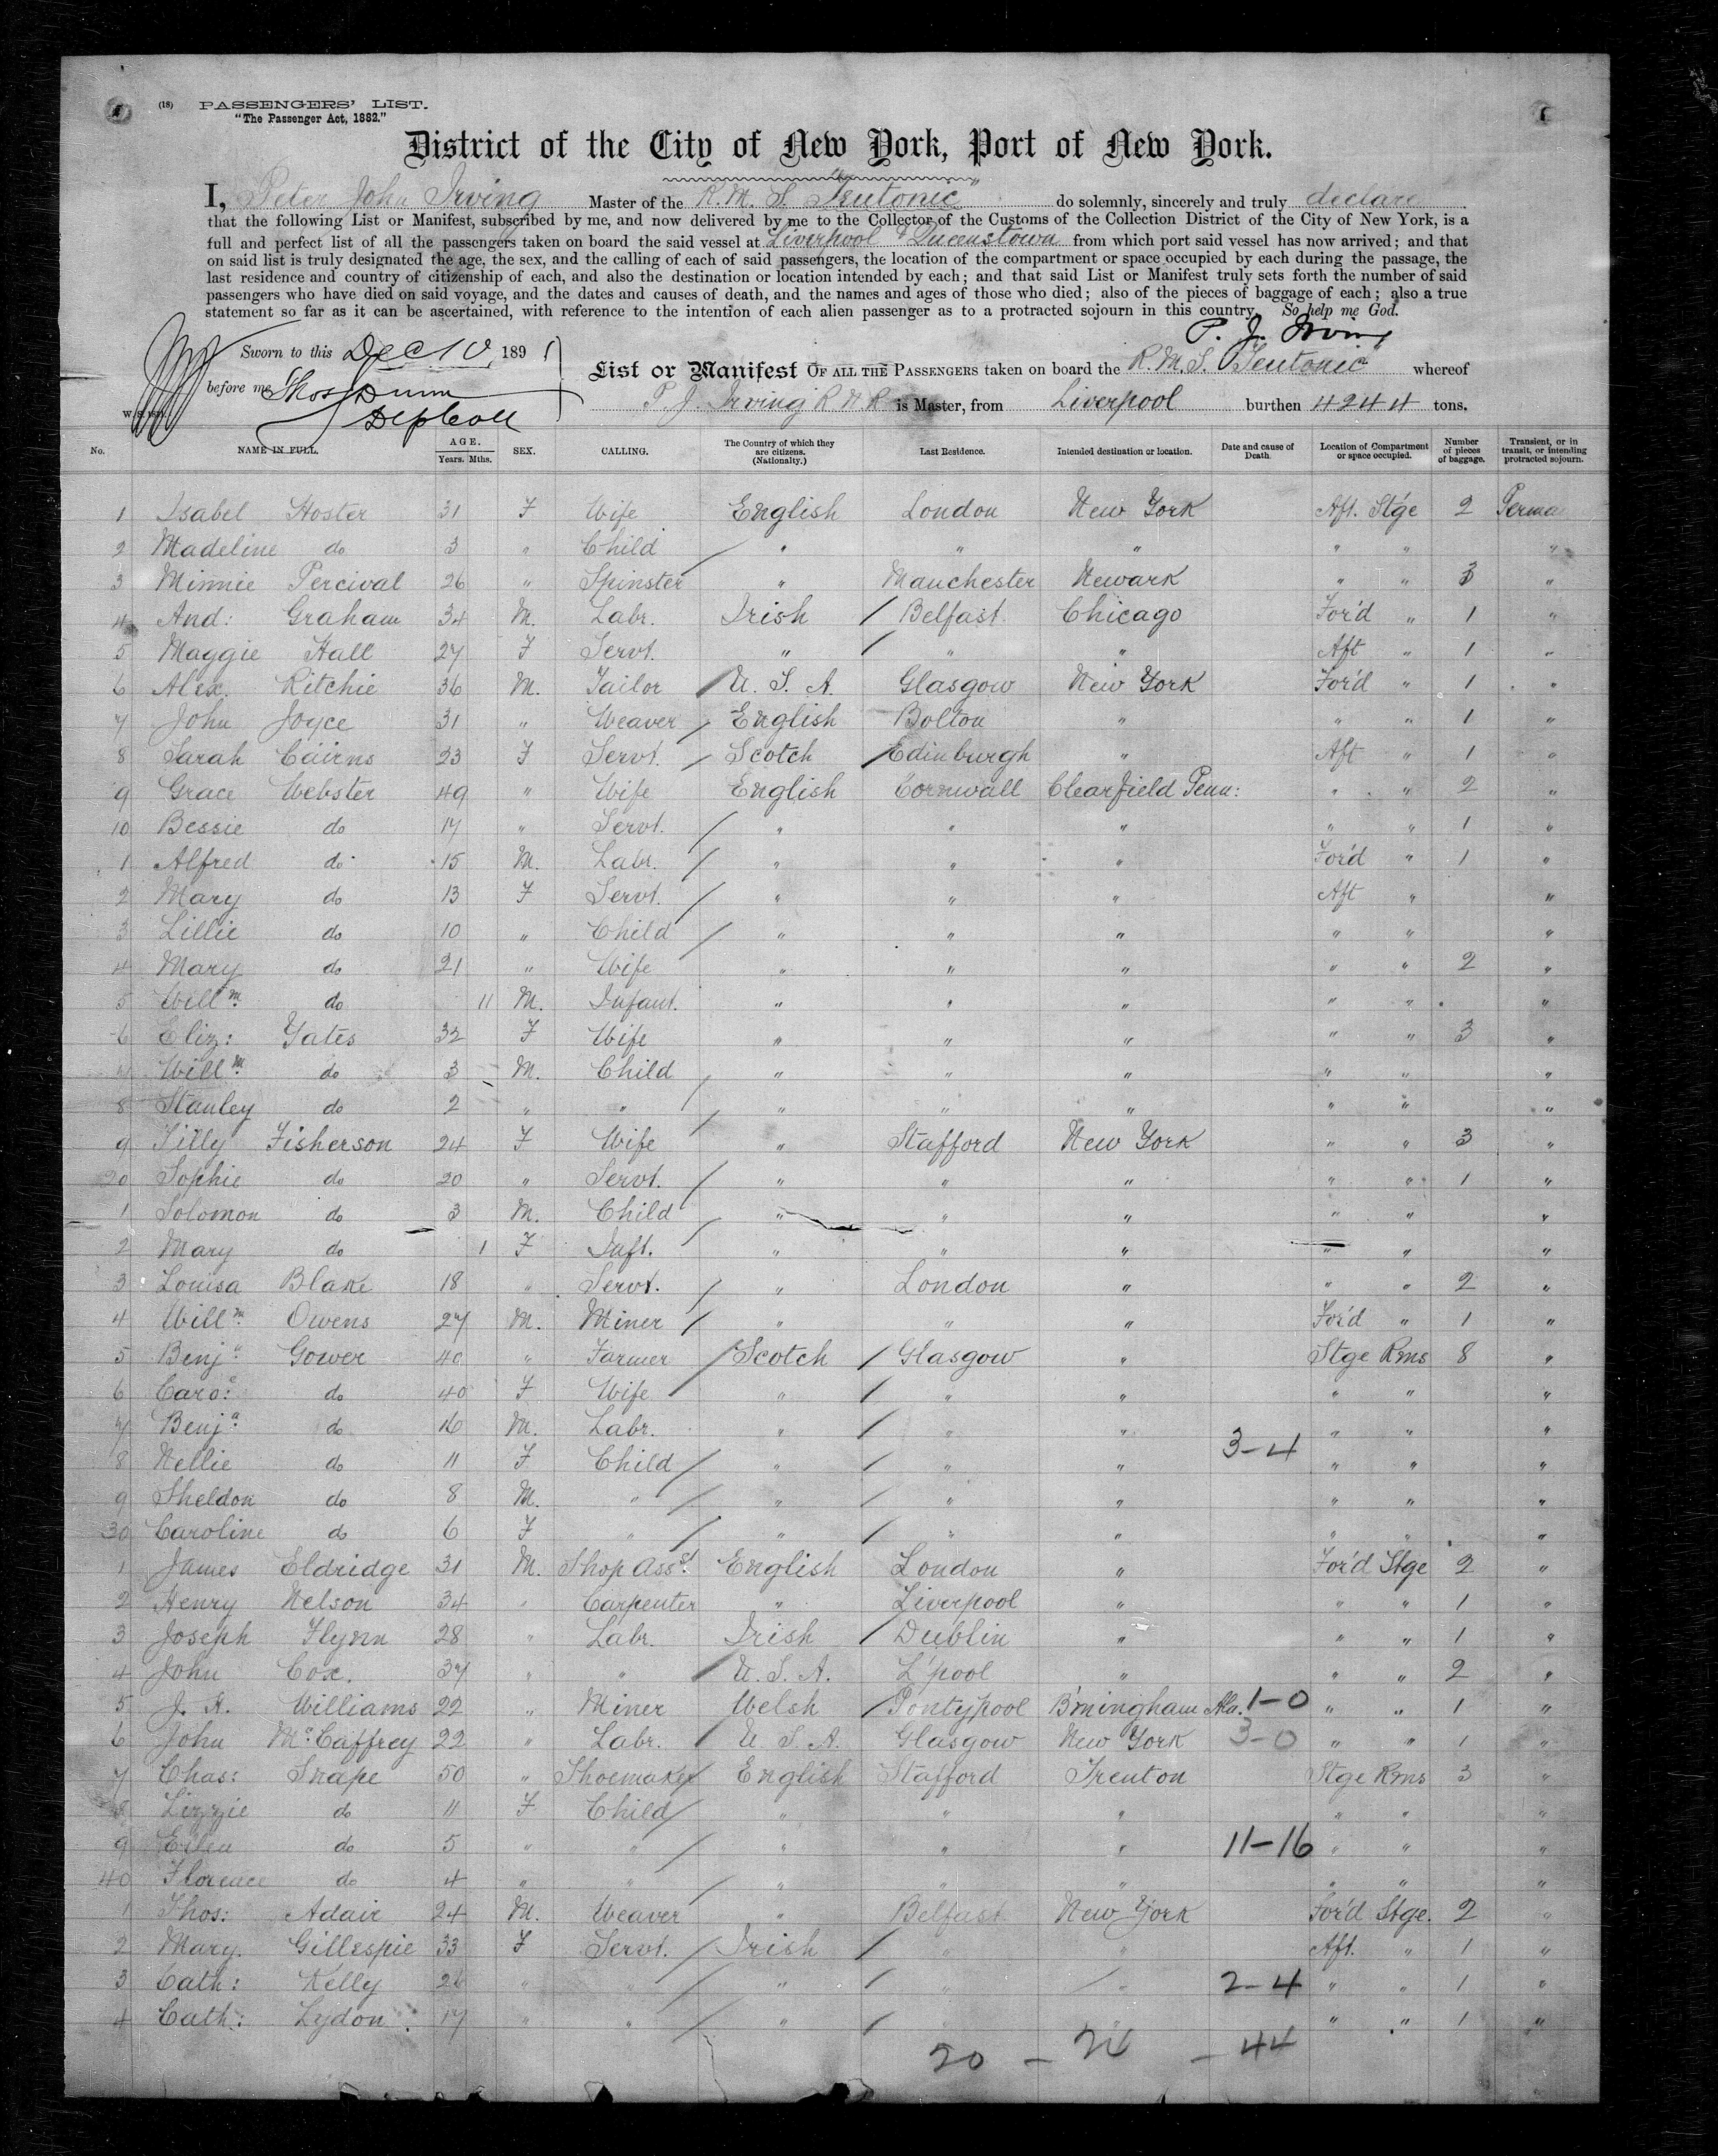 (18) PASSENGERS' LIST.
"The Passenger Act, 1882."
District of the City of New York, Port of New York.
I, Peter John Irving Master of the R.M.S. "Teutonic" do solemnly, sincerely and truly declare
that the following List or Manifest, subscribed by me, and now delivered by me to the Collector of the Customs of the Collection District of the City of New York, is a
full and perfect list of all the passengers taken on board the said vessel at Liverpool & Queenstown from which port said vessel has now arrived; and that
on said list is truly designated the age, the sex, and the calling of each of said passengers, the location of the compartment or space occupied by each during the passage, the
last residence and country of citizenship of each, and also the destination or location intended by each; and that said List or Manifest truly sets forth the number of said
passengers who have died on said voyage, and the dates and causes of death, and the names and ages of those who died; also of the pieces of baggage of each; also a true
statement so far as it can be ascertained, with reference to the intention of each alien passenger as to a protracted sojourn in this country. So help me God.
P. J. Irving
Sworn to this Dec 10 1891
before me Thos Dunn
Dep Coll
List or Manifest OF ALL THE PASSENGERS taken on board the R.M.S. "Teutonic" whereof
P. J. Irving R N R is Master, from Liverpool burthen 4244 tons.
No. NAME IN FULL. AGE. Years. Mths. SEX. CALLING. The Country of which they are citizens. (Nationalty.) Last Residence. Intended destination or location. Date and cause of Death. Location of Compartment or space occupied. Number of pieces of baggage. Transient, or in transit, or intending protracted sojourn.
1 Isabel Hoster 31 F Wife English London New York Aft. Stge 2 Perma
2 Madeline do 3 " Child " " " " " "
3 Minnie Percival 26 " Spinster " Manchester Newark " " 3 "
4 And: Graham 34 M. Labr. Irish Belfast Chicago For'd " 1 "
5 Maggie Hall 27 F Servt. " " " Aft " 1 "
6 Alex. Ritchie 36 M. Tailor U. S. A. Glasgow New York For'd " 1 "
7 John Joyce 31 " Weaver English Bolton " " " 1 "
8 Sarah Cairns 23 F Servt. Scotch Edinburgh " Aft " 1 "
9 Grace Webster 49 " Wife English Cornwall Clearfield Penn: " " 2 "
10 Bessie do 17 " Servt. " " " " " 1 "
1 Alfred do 15 M. Labr. " " " For'd " 1 "
2 Mary do 13 F Servt. " " " Aft " "
3 Lillie do 10 " Child " " " " " "
4 Mary do 21 " Wife " " " " " 2 "
5 Willm. do 11 M. Infant. " " " " " "
6 Eliz: Yates 32 F Wife " " " " " 3 "
7 Willm. do 3 M. Child " " " " " "
8 Stanley do 2 " " " " " " " "
9 Tilly Fisherson 24 F Wife " Stafford New York " " 3 "
20 Sophie do 20 " Servt. " " " " " 1 "
1 Solomon do 3 M. Child " " " " " "
2 Mary do 1 F Inft. " " " " " "
3 Louisa Blake 18 " Servt. " London " " " 2 "
4 Willm. Owens 27 M. Miner " " " For'd " 1 "
5 Benjn. Gower 40 " Farmer Scotch Glasgow " Stge Rms 8 "
6 Caroe. do 40 F Wife " " " " " "
7 Benja. do 16 M. Labr. " " " " " "
3-4
8 Nellie do 11 F Child " " " " " "
9 Sheldon do 8 M. " " " " " " "
30 Caroline do 6 F " " " " " " "
1 James Eldridge 31 M. Shop Asst. English London " For'd Stge 2 "
2 Henry Nelson 34 " Carpenter " Liverpool " " " 1 "
3 Joseph Flynn 28 " Labr. Irish Dublin " " " 1 "
4 John Cox. 37 " " U. S. A. L'pool " " " 2 "
5 J. H. Williams 22 " Miner Welsh Pontypool B'mingham Ala. 1-0 " " 1 "
6 John McCaffrey 22 " Labr. U. S. A. Glasgow New York 3-0 " " 1 "
7 Chas: Snape 50 " Shoemaker English Stafford Trenton Stge Rms 3 "
8 Lizzie do 11 F Child " " " " " "
9 Ellen do 5 " " " " " 11-16 " " "
40 Florence do 4 " " " " " " " "
1 Thos: Adair 24 M. Weaver " Belfast New York For'd Stge. 2 "
2 Mary. Gillespie 33 F Servt. Irish " " Aft. " 1 "
3 Cath: Kelly 26 " " " " " 2-4 " " 1 "
4 Cath: Lydon 17 " " " " " " " 1 "
20 - 24 - 44